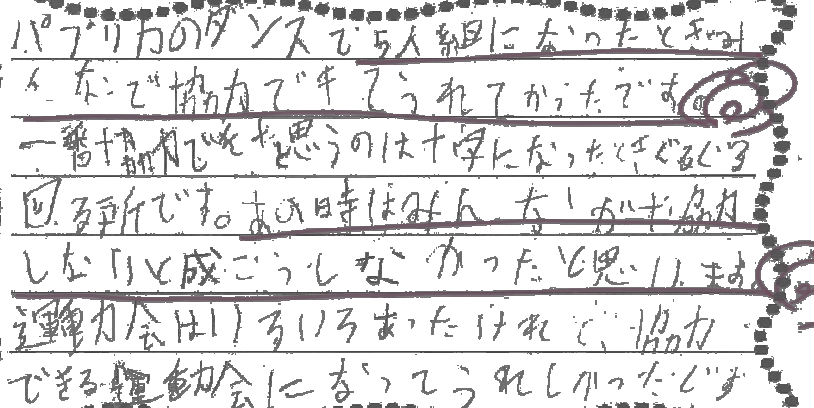 パプリカのダンスで5人組になったときみ
んなで協力できてうれてかったです。
一番協力できたと思うのは十字になったときぐるぐる
回る所です。あの時はみんなが協力
しないと成こうしなかったと思います。
運動会はいろいろあったけれど、協力
できる運動会になってうれしかったです